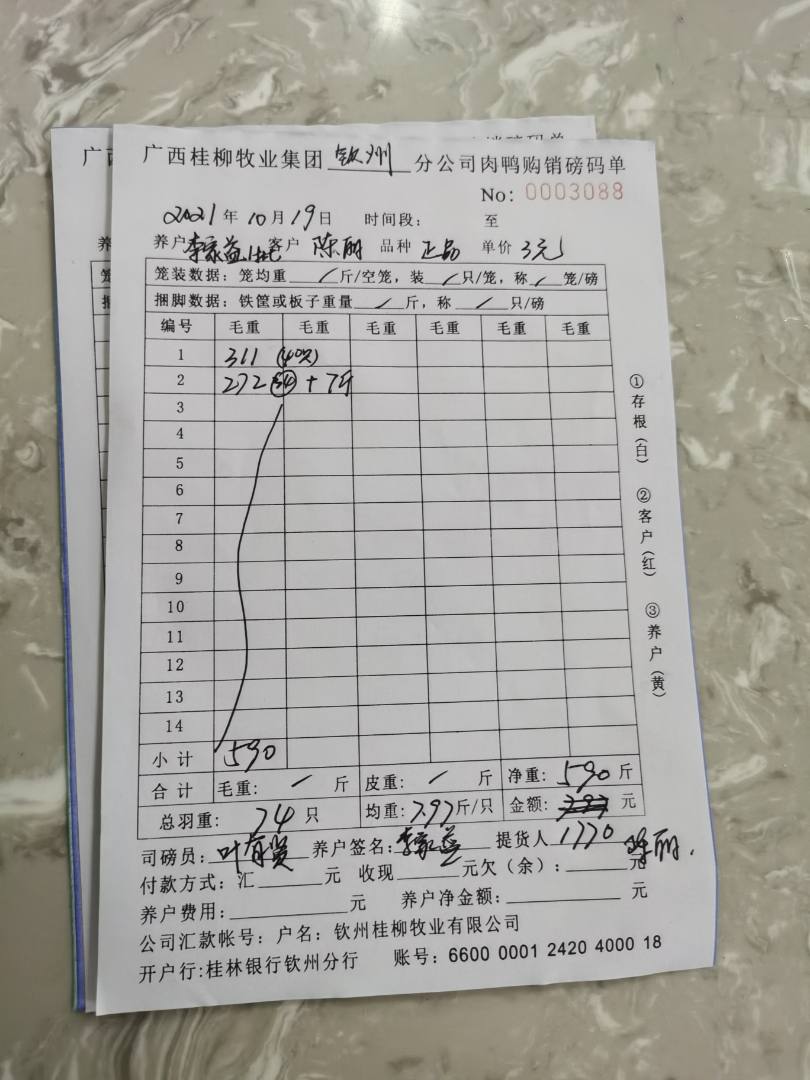 广西桂柳牧业集团 钦州 分公司肉鸭购销磅码单
No: 0003088
2021年10月19日 时间段: 至
养户 李家益 客户 陈丽 品种 正品 单价 3元
笼装数据: 笼均重 / 斤/空笼, 装 / 只/笼, 称 / 笼/磅
捆脚数据: 铁筐或板子重量 / 斤, 称 / 只/磅
编号 毛重 毛重 毛重 毛重 毛重 毛重
1 311 (40只)
2 272 34 + 7斤
3
4
5
6
7
8
9
10
11
12
13
14
小计 590
合计 毛重: / 斤 皮重: / 斤 净重: 590 斤
总羽重: 74 只 均重: 7.97 斤/只 金额: 元
司磅员: 养户签名: 李家益 提货人 1770 陈丽.
付款方式: 汇 元 收现 元欠(余): 元
养户费用: 元 养户净金额: 元
公司汇款帐号: 户名: 钦州桂柳牧业有限公司
开户行:桂林银行钦州分行 账号: 6600 0001 2420 4000 18
①存根(白) ②客户(红) ③养户(黄)